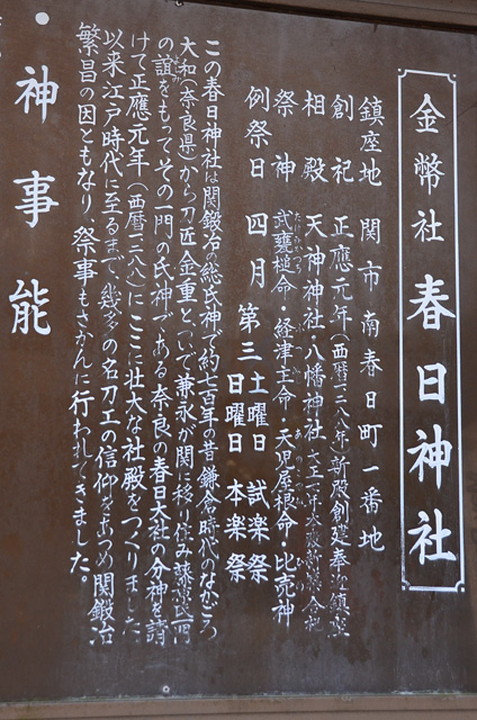 金幣社 春日神社
鎮座地 関市南春日町一番地
創祀 正應元年(西暦一二八八年)新殿創建奉迎鎮座
相殿 天神神社・八幡神社
祭神 武甕槌命・経津主命・天児屋根命・比売神
例祭日 四月 第三 土曜日 試楽祭
日曜日 本楽祭
この春日神社は関鍛冶の総氏神で約七百年の昔鎌倉時代のなかごろ
大和(奈良県)から刀匠金重とついで兼永が関に移り住み藤原氏一門
の誼をもってその一門の氏神である奈良の春日大社の分神を請
けて正應元年(西暦一二八八)にここに壮大な社殿をつくりました
以来江戸時代に至るまで、幾多の名刀工の信仰をあつめ関鍛冶
繁昌の因ともなり、祭事もさかんに行われてきました。
・神事能